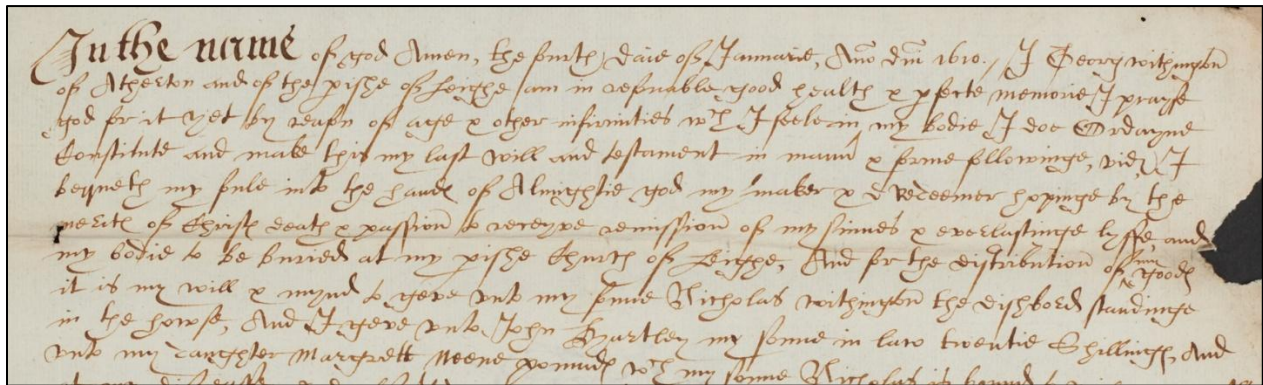 In the name of god Amen, the fourth daie of Januarie, Ano dni 1610., I Georg withington
of Atherton and of the pishe of Leighe am in resonable good health & pfecte memorie I prayse
god for it yet by reason of age & other infirmities wch I feele in my bodie I doe Ordayne
Constitute and make this my last will and testament in mann & forme followinge, vidz I
bequeth my soule into the hands of Almightie god my maker & Redeemer hopinge by the
merits of Christs death & passion to receyve remission of my sinnes & everlastinge lyffe, and
my bodie to be buried at my pishe Church of Leighe, And for the distribution of my goods
it is my will & mynd to geve unto my sonne Nicholas withington the dishbord standinge
in the howse, And I geve unto John Hurtley my sonne in law twentie Shillings, And
unto my daughter Margrett Neene pounds wch my sonne Nicholas is bound to